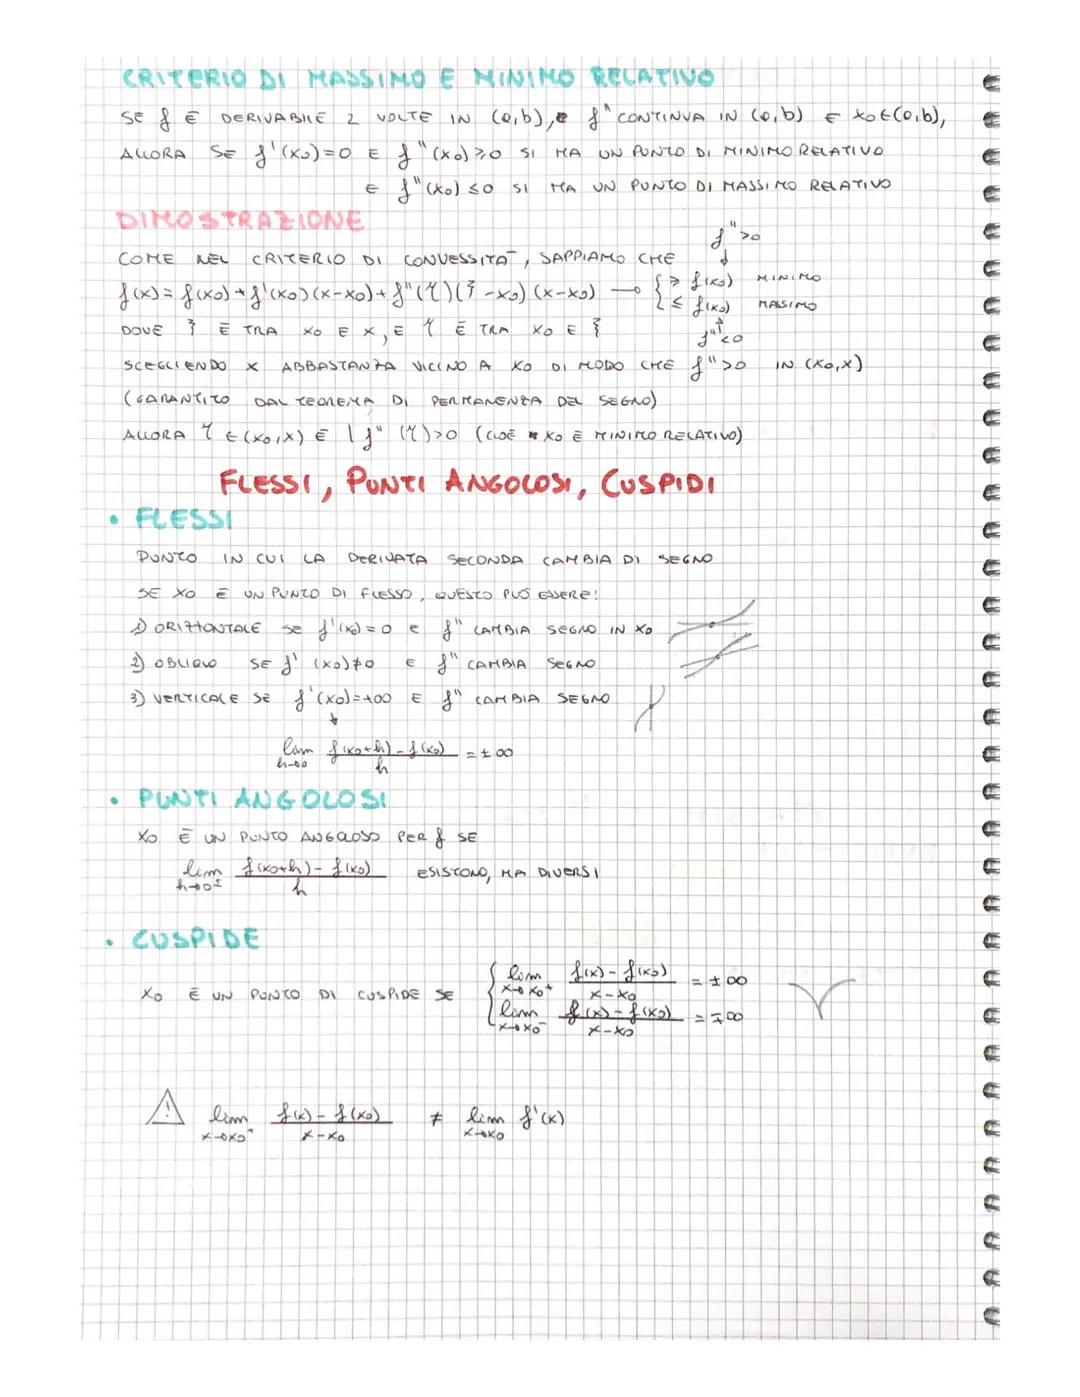 CRITERIO DI MASSIMO E MINIMO RELATIVO
SE f È DERIVABILE 2 VOLTE IN (a,b), e f" CONTINUA IN (a,b) E x₀∈(a,b),
ALLORA SE f'(x₀)=0 E f"(x₀)≥0 SI HA UN PUNTO DI MINIMO RELATIVO
E f"(x₀)≤0 SI HA UN PUNTO DI MASSIMO RELATIVO
DIMOSTRAZIONE
f">0
COME NEL CRITERIO DI CONVESSITÀ, SAPPIAMO CHE ↓
f(x)=f(x₀)+f'(x₀)(x-x₀)+f"(η)(ξ-x₀)(x-x₀) → { ≥ f(x₀) MINIMO
≤ f(x₀) MASSIMO
DOVE ξ È TRA x₀ E x, E η È TRA x₀ E ξ
↑ f"<0
SCEGLIENDO x ABBASTANZA VICINO A x₀ DI MODO CHE f">0 IN (x₀,x)
(GARANTITO DAL TEOREMA DI PERMANENZA DEL SEGNO)
ALLORA η ∈(x₀,x) È | f"(η)>0 (CIOÈ x₀ È MINIMO RELATIVO)
FLESSI, PUNTI ANGOLOSI, CUSPIDI
• FLESSI
PUNTO IN CUI LA DERIVATA SECONDA CAMBIA DI SEGNO
SE x₀ È UN PUNTO DI FLESSO, QUESTO PUÒ ESSERE:
1) ORIZZONTALE SE f'(x₀)=0 e f" CAMBIA SEGNO IN x₀
2) OBLIQUO SE f'(x₀)≠0 E f" CAMBIA SEGNO
3) VERTICALE SE f'(x₀)=+∞ E f" CAMBIA SEGNO
↓
lim h→0 f(x₀+h)-f(x₀) / h = ±∞
• PUNTI ANGOLOSI
x₀ È UN PUNTO ANGOLOSO PER f SE
lim h→0± f(x₀+h)-f(x₀) / h ESISTONO, MA DIVERSI
• CUSPIDE
x₀ È UN PUNTO DI CUSPIDE SE { lim x→x₀⁺ f(x)-f(x₀) / x-x₀ = ±∞
lim x→x₀⁻ f(x)-f(x₀) / x-x₀ = ∓∞
⚠ lim x→x₀⁻ f(x)-f(x₀) / x-x₀ ≠ lim x→x₀ f'(x)